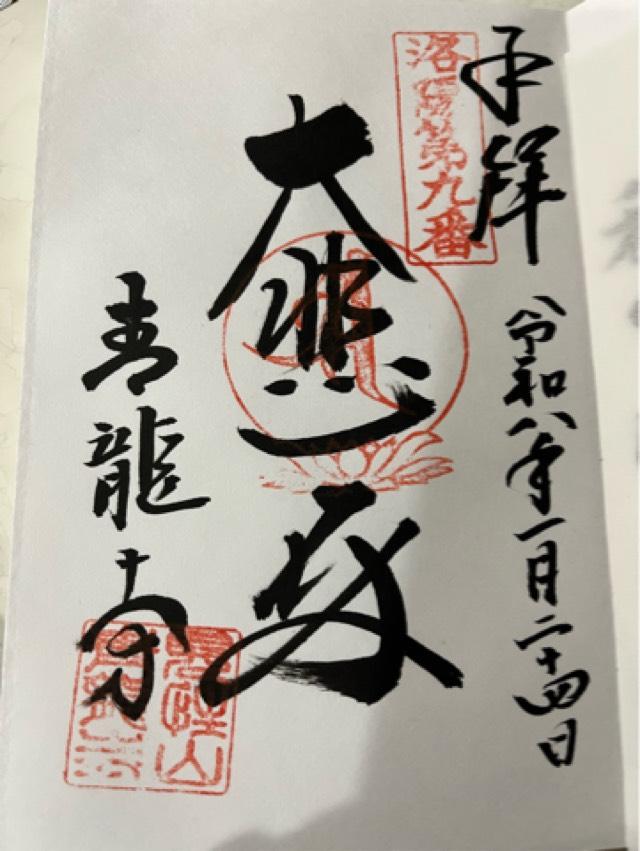 奉拝
洛陽第九番
令和八年一月二十四日
大悲殿
青龍寺